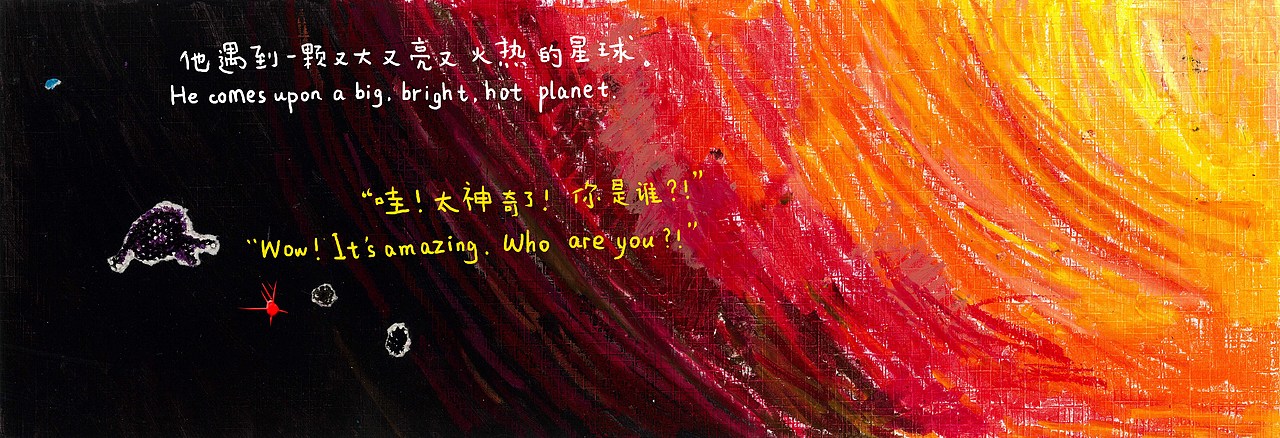 他遇到一颗又大又亮又火热的星球。
He comes upon a big, bright, hot planet.
“哇！太神奇了！你是谁？！”
“Wow! It's amazing. Who are you?!”